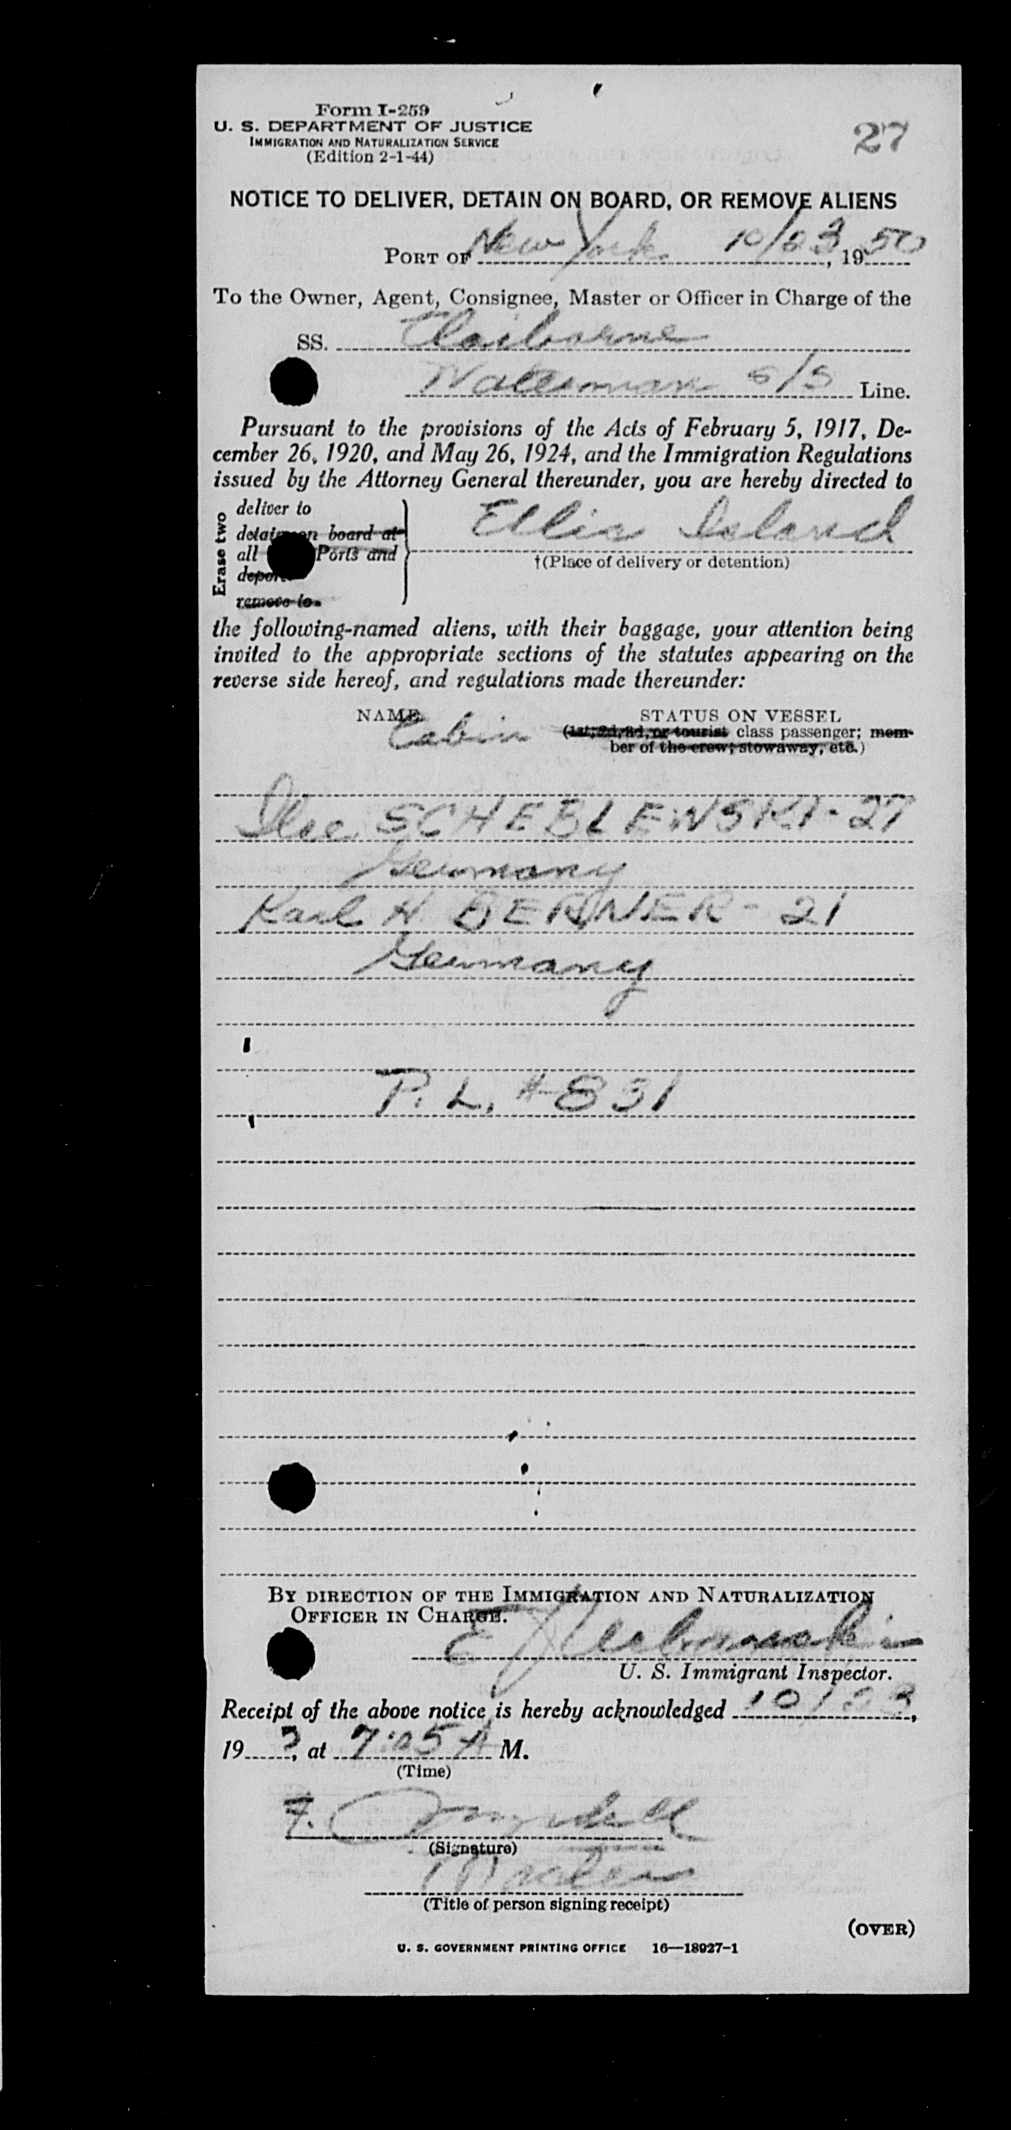 Form I-259
U. S. DEPARTMENT OF JUSTICE
IMMIGRATION AND NATURALIZATION SERVICE
(Edition 2-1-44)
27
NOTICE TO DELIVER, DETAIN ON BOARD, OR REMOVE ALIENS
PORT OF New York 10/23, 1950
To the Owner, Agent, Consignee, Master or Officer in Charge of the
SS. Claiborne
Waterman S/S Line.
Pursuant to the provisions of the Acts of February 5, 1917, De-
cember 26, 1920, and May 26, 1924, and the Immigration Regulations
issued by the Attorney General thereunder, you are hereby directed to
Erase two
deliver to
detain on board at
all Ports and
deport
remove to
Ellis Island
†(Place of delivery or detention)
the following-named aliens, with their baggage, your attention being
invited to the appropriate sections of the statutes appearing on the
reverse side hereof, and regulations made thereunder:
NAME STATUS ON VESSEL
Cabin (1st, 2d, 3d, or tourist class passenger; mem-
ber of the crew; stowaway, etc.)
Ilse SCHEBLEWSKI - 27
Germany
Karl H BERNER - 21
Germany
P. L. #831
BY DIRECTION OF THE IMMIGRATION AND NATURALIZATION
OFFICER IN CHARGE.
E
U. S. Immigrant Inspector.
Receipt of the above notice is hereby acknowledged 10/23,
19 , at 7:05 A M.
(Time)
F.
(Signature)
Master
(Title of person signing receipt)
(OVER)
U. S. GOVERNMENT PRINTING OFFICE 16—18927-1